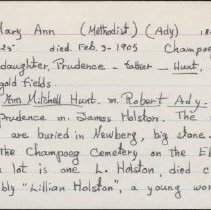 Mary Ann (Methodist) (Ady) 18
25 died Feb. 3-1905 Champoeg
daughter, Prudence - father - Hunt,
gold fields
Ann Mitchell Hunt. m. Robert Ady.
Prudence m. James Holston. The
are buried in Newberg, big stone.
the Champoeg Cemetery on the E
lot is one L. Holston, died c
bly "Lillian Holston", a young wo